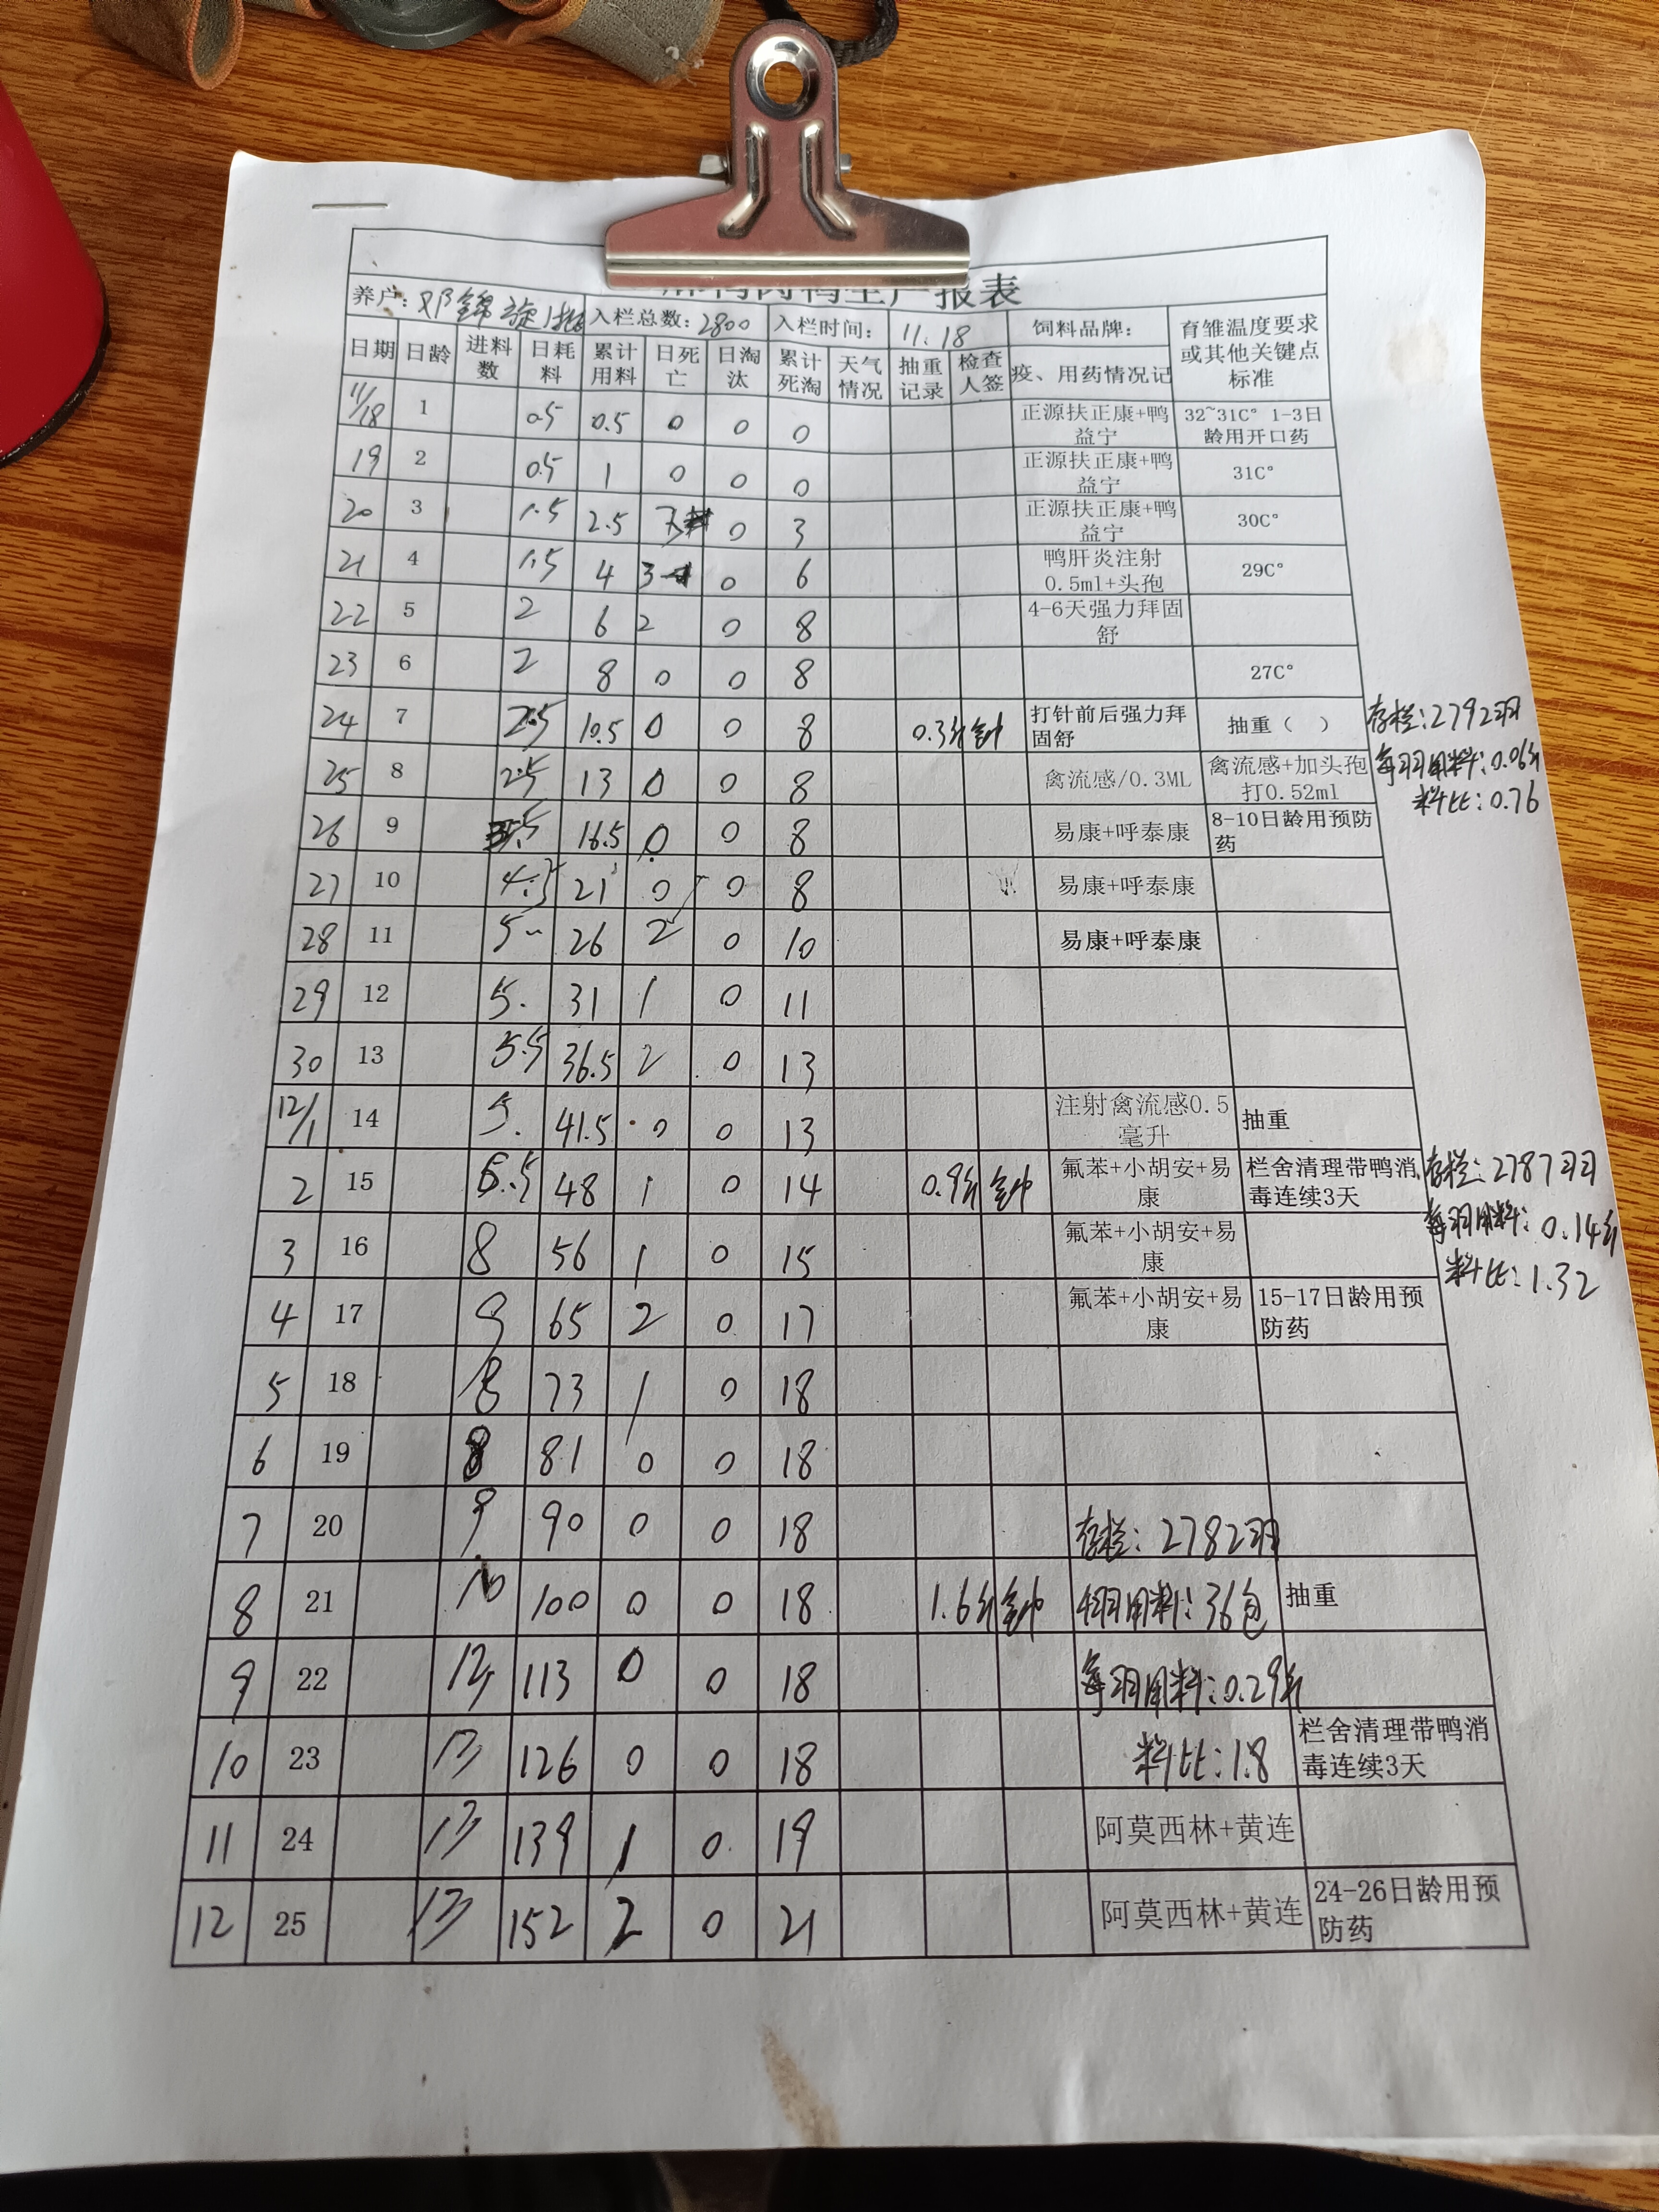 报表
养户: 邓錦旋1批 入栏总数: 2800 入栏时间: 11.18 饲料品牌: 育雏温度要求或其他关键点标准
日期 日龄 进料数 日耗料 累计用料 日死亡 日淘汰 累计死淘 天气情况 抽重记录 检查人签 疫、用药情况记
11/18 1 0.5 0.5 0 0 0 正源扶正康+鸭益宁 32~31C° 1-3日龄用开口药
19 2 0.5 1 0 0 0 正源扶正康+鸭益宁 31C°
20 3 1.5 2.5 3 0 3 正源扶正康+鸭益宁 30C°
21 4 1.5 4 3 0 6 鸭肝炎注射0.5ml+头孢 29C°
22 5 2 6 2 0 8 4-6天强力拜固舒
23 6 2 8 0 0 8 27C°
24 7 2.5 10.5 0 0 8 0.3斤 打针前后强力拜固舒 抽重（ ） 存栏:2792羽
25 8 2.5 13 0 0 8 禽流感/0.3ML 禽流感+加头孢打0.52ml 每羽用料:0.06斤
料比:0.76
26 9 3.5 16.5 0 0 8 易康+呼泰康 8-10日龄用预防药
27 10 4.5 21 0 0 8 易康+呼泰康
28 11 5 26 2 0 10 易康+呼泰康
29 12 5. 31 1 0 11
30 13 5.5 36.5 2 0 13
12/1 14 5. 41.5 0 0 13 注射禽流感0.5毫升 抽重
2 15 6.5 48 1 0 14 0.9斤 氟苯+小胡安+易康 栏舍清理带鸭消毒连续3天 存栏:2787羽
每羽用料:0.14斤
3 16 8 56 1 0 15 氟苯+小胡安+易康 料比:1.32
4 17 9 65 2 0 17 氟苯+小胡安+易康 15-17日龄用预防药
5 18 8 73 1 0 18
6 19 8 81 0 0 18
7 20 9 90 0 0 18 存栏: 2782羽
8 21 10 100 0 0 18 1.6斤 用料:36包 抽重
9 22 13 113 0 0 18 每羽用料:0.29斤
10 23 13 126 0 0 18 料比:1.8 栏舍清理带鸭消毒连续3天
11 24 13 139 1 0. 19 阿莫西林+黄连
12 25 13 152 2 0 21 阿莫西林+黄连 24-26日龄用预防药